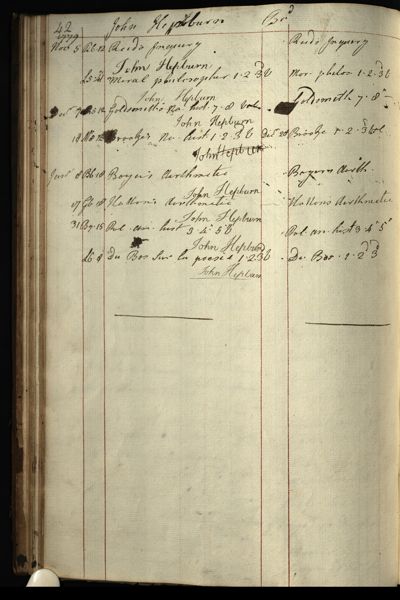 42 John Hepburn Brd
1779
Nov 5 Bb 12 Reids Inquiry Reids Inquiry
John Hepburn
Moral philosopher 1. 2. 3d v Mor. philos 1. 2. 3d v
John Hepburn
Decr Goldsmith's Na. hist 7. 8 vol. Goldsmith 7. 8
John Hepburn
18 Brookes Na. hist 1. 2 3. 6 Decr 20 Brookes 1. 2. 3 vol
John Hepburn
Janr 8 Bb 18 Boyer's Arithmetic Boyers Arith.
John Hepburn
17 Gb 18 Hattons Arithmetic Hattons Arithmetic
John Hepburn
31 Bg. 15 Rol. an. hist 3d 4. 5 v Rol an. hist 3. 4. 5
John Hepburn
Du Bos Sur la poesie 1. 2. 3d v Du Bos. 1. 2d 3d
John Hepburn